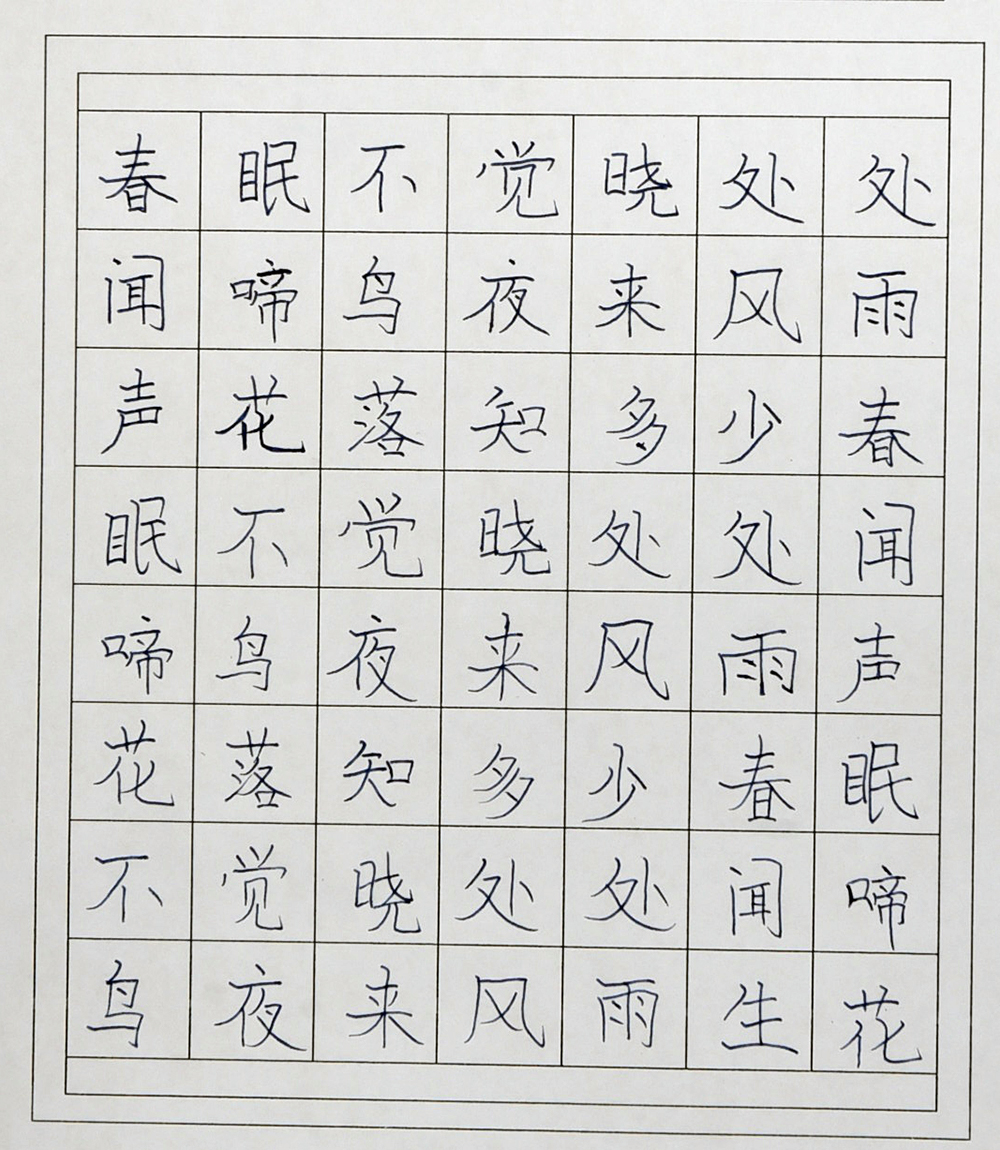 春眠不觉晓处处
闻啼鸟夜来风雨
声花落知多少春
眠不觉晓处处闻
啼鸟夜来风雨声
花落知多少春眠
不觉晓处处闻啼
鸟夜来风雨生花